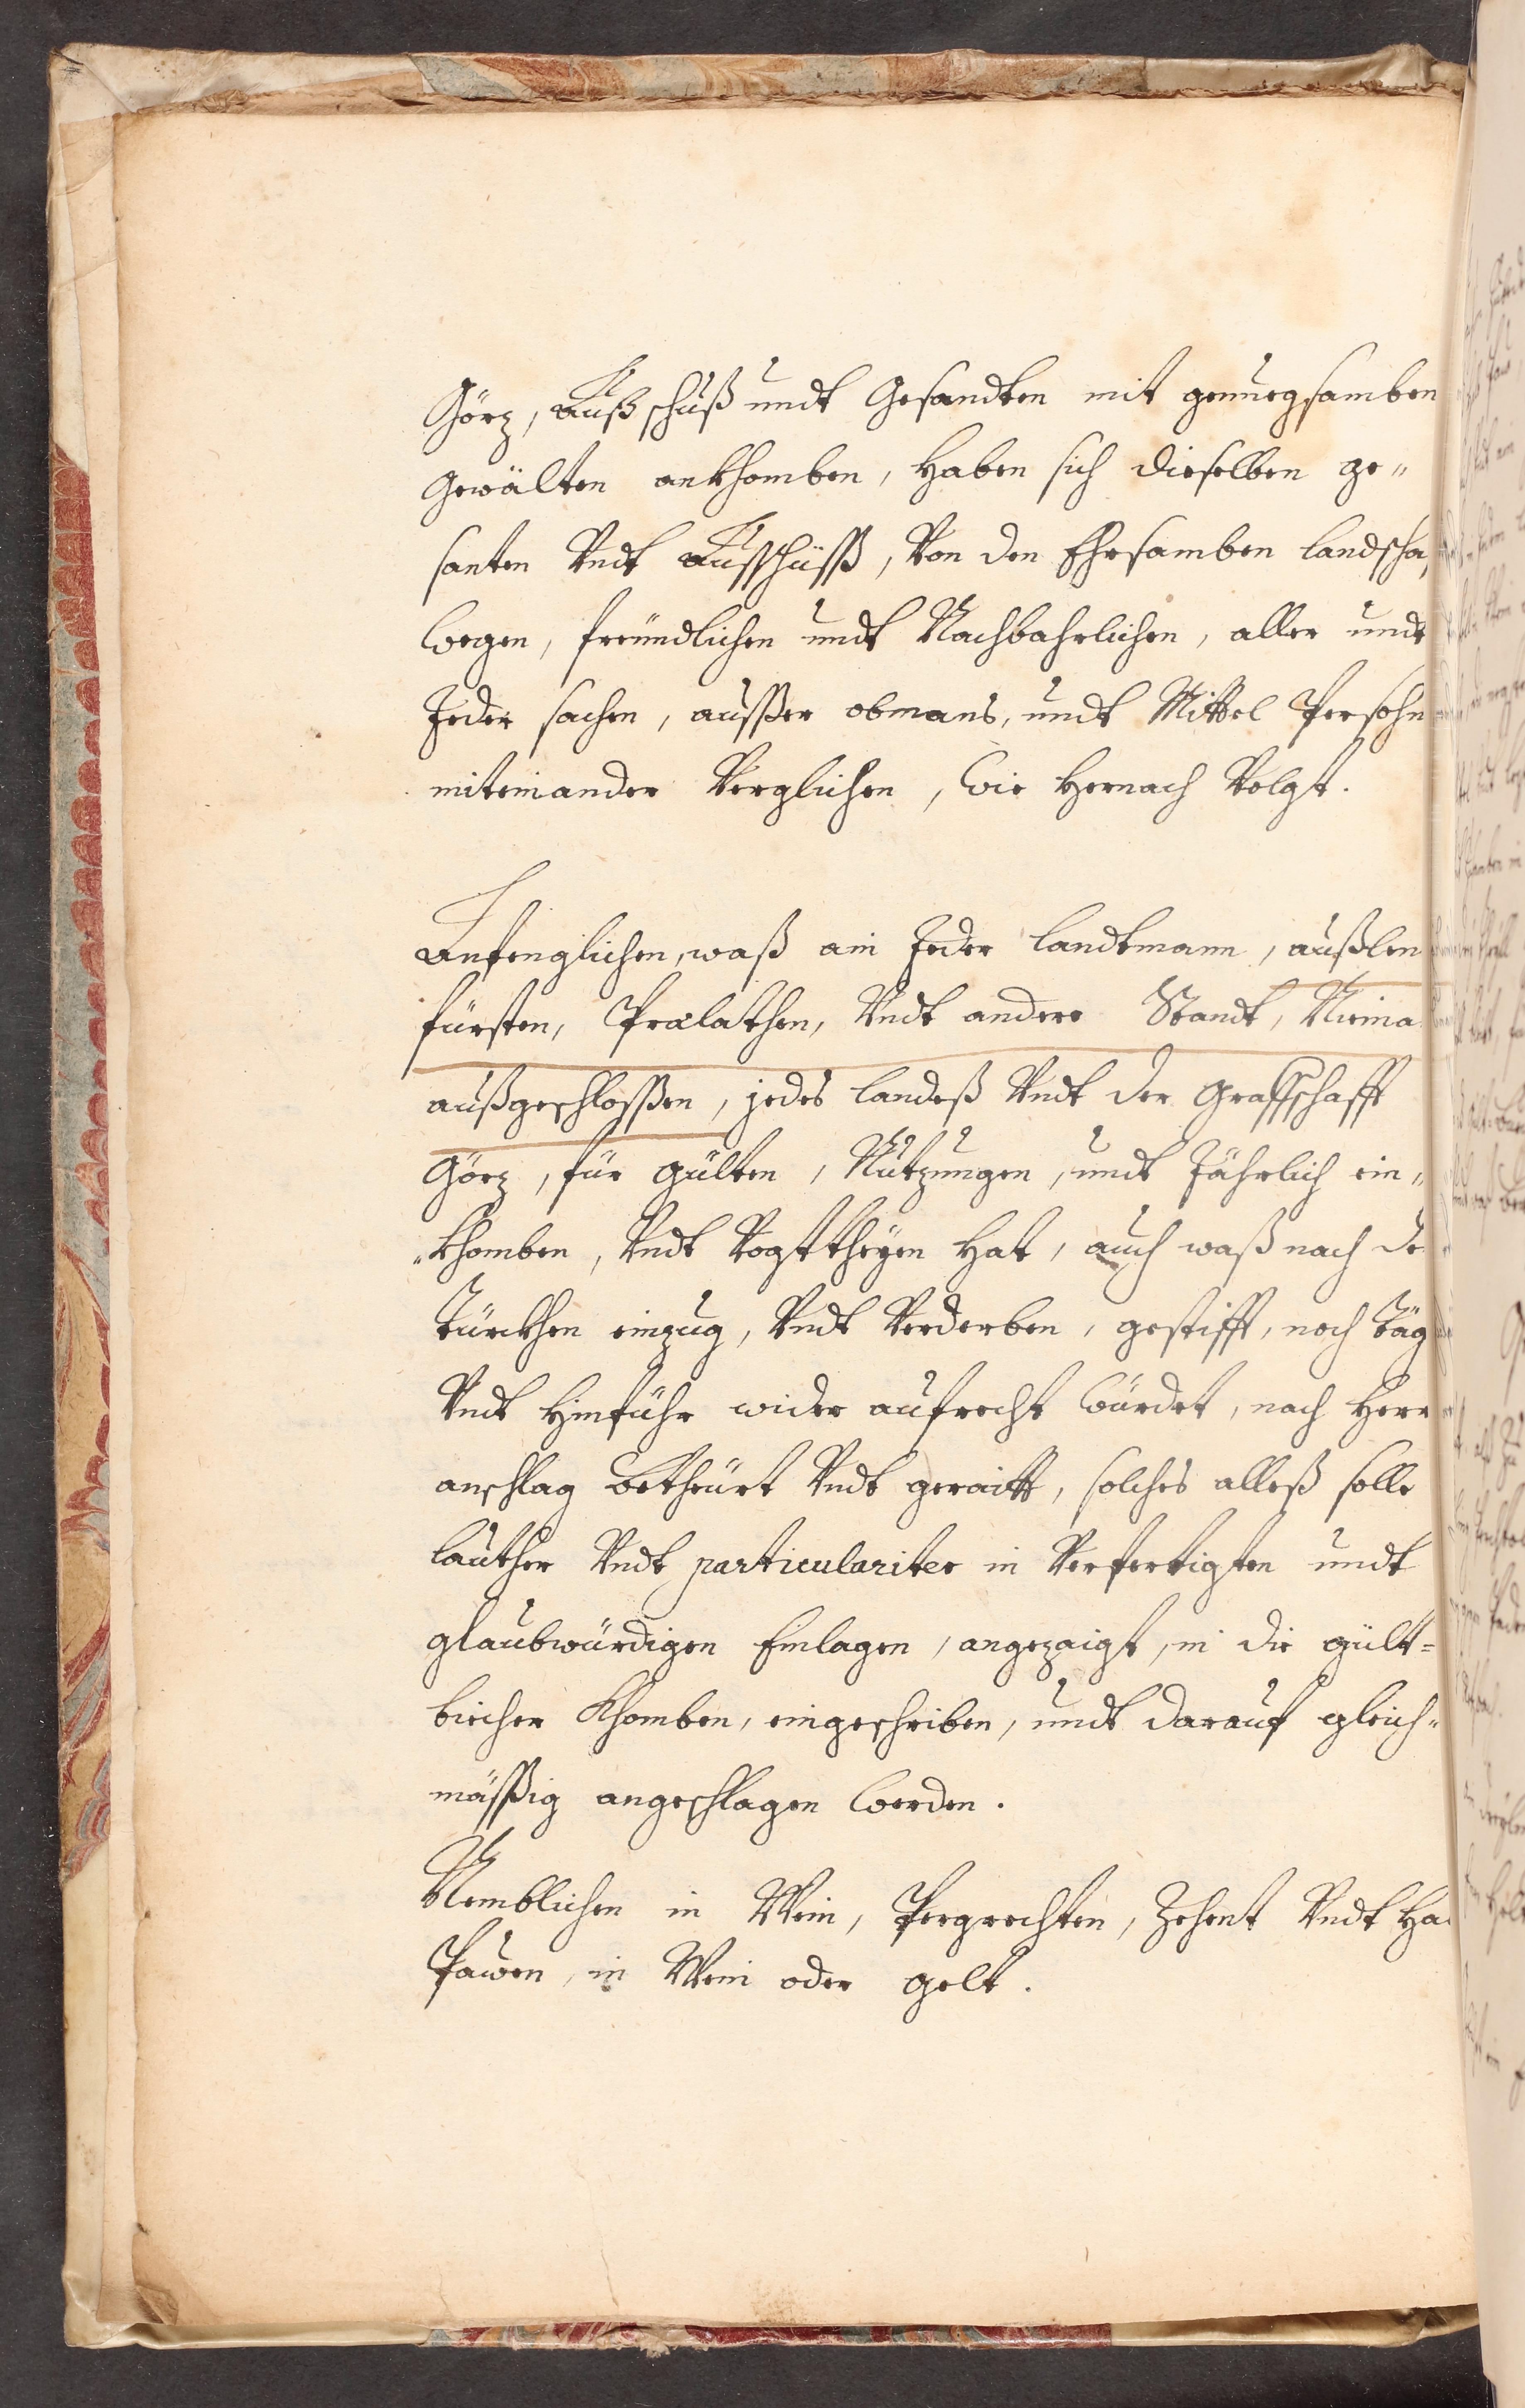 Görz, Außschuß undt Gesandten mit genuegsamben
gewälten ankhomben, haben sich dieselben ge„
santen Vndt Außschüss, Von den Ehrsamben landscha
wegen, freündlichen undt Nachbahrlichen, aller undt
Jeder sachen, ausser obmans, undt Mittel Persohn
miteinander Verglichen, wie hernach Volgt.
Anfenglichen, waß ain Jeder landtmann, außlen
fürsten, Prælathen, Vndt andere Standt, Niema
außgeschlossen, jedes landeß Vndt der Graffschafft
Görz, für gülten, Nutzungen, undt Jährlich ein„
„khomben, Vndt Vogttheyen hat, auch waß nach de
Türckhen einzug, Vndt Verderben, gestifft, noch täg
Vndt hinführ wider aufrecht würdet, nach herr
anschlag betheürt Vndt geraitt, solches alleß solle
lauther Vndt particulariter in Verfertigten undt
glaubwürdigen Einlagen, angezaigt, in die gült=
biecher khomben, eingeschriben, undt darauf gleich„
mässig angeschlagen werden.
Nemblichen in Wein, Pergrechten, Zehent Vndt ha
Pawen, in Wein oder gelt.